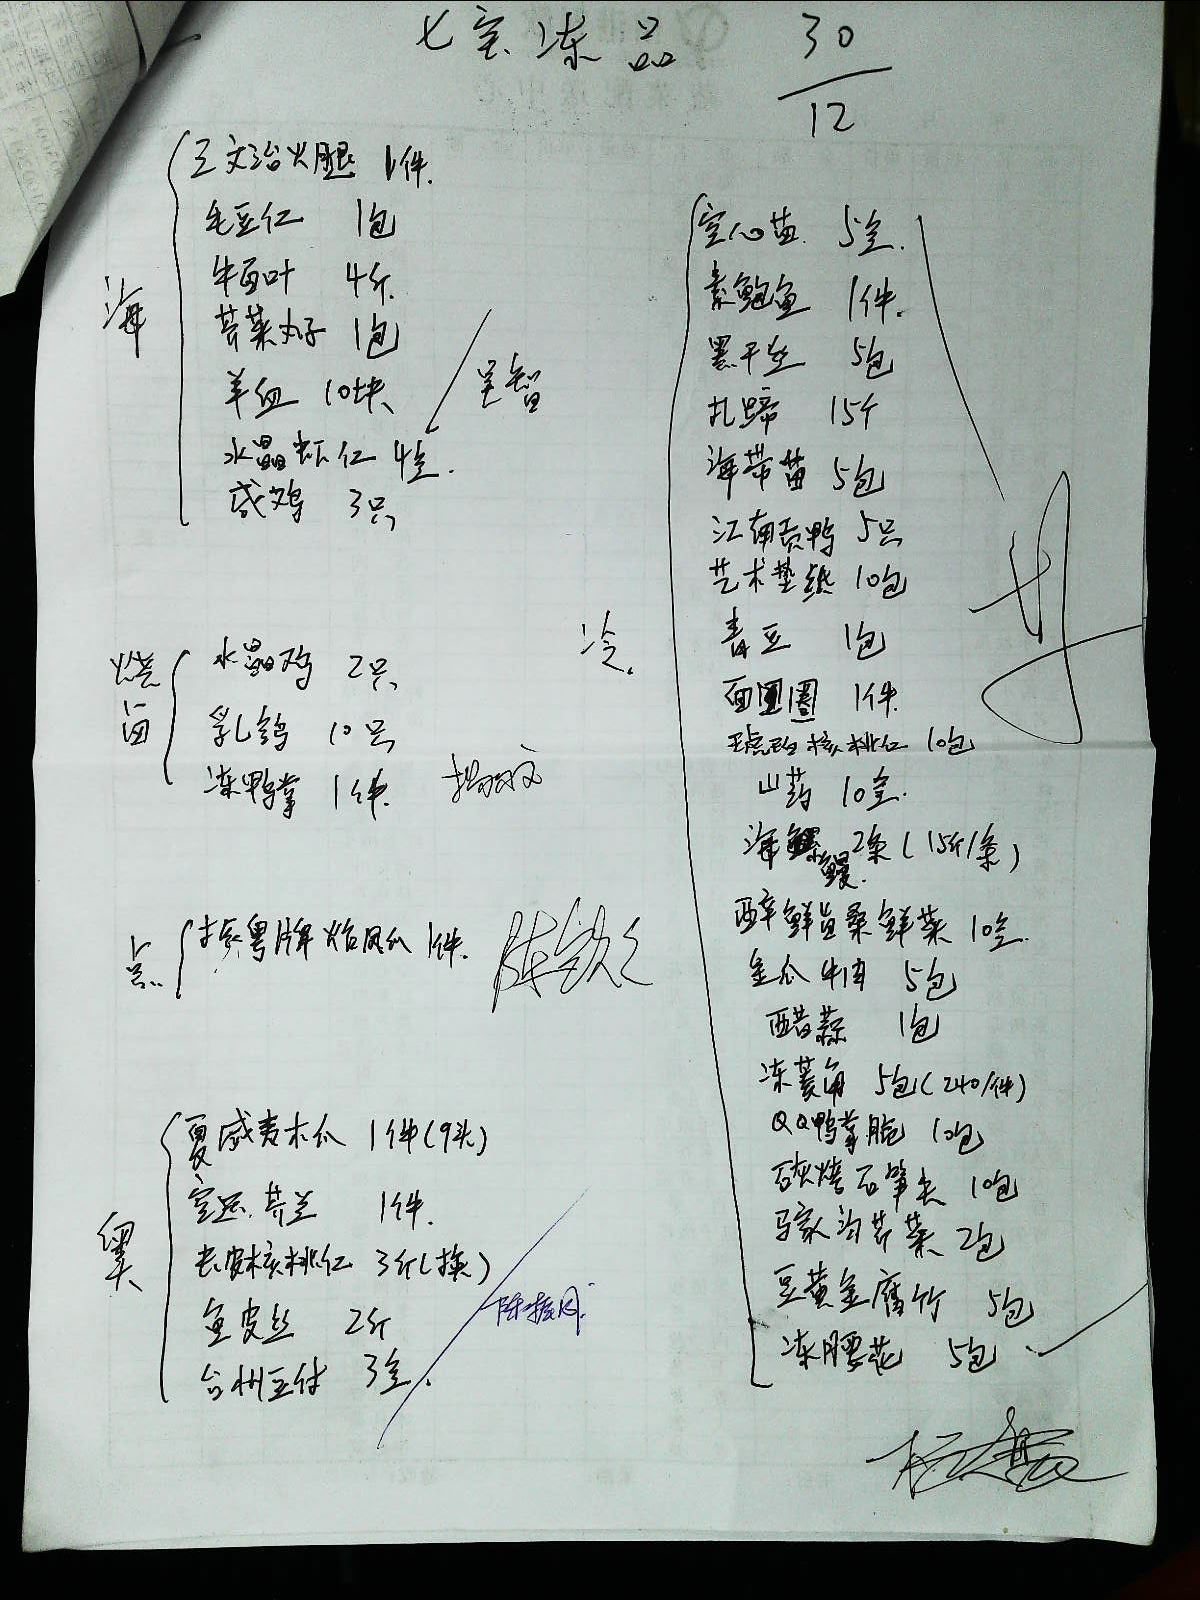 七宝冻品 30/12
海
三文治火腿 1件.
毛豆仁 1包
牛百叶 4斤.
荠菜丸子 1包
羊血 10块
水晶虾仁 4盒.
咸鸡 3只
烧卤
水晶鸡 2只
乳鸽 10只
冻鸭掌 1件.
点
粤牌 凤爪 1件.
夏威夷木瓜 1件(9头)
空运芥兰 1件.
长皮核桃仁 3斤(换)
鱼皮丝 2斤
台州豆付 3盒.
冷.
空心 5盒.
素鲍鱼 1件.
黑干丝 5包
扎蹄 15个
海带苗 5包
江南贡鸭 5只
艺术垫纸 10包
青豆 1包
面圈 1件.
琥珀核桃仁 10包
山药 10盒.
海鳗 2条(15斤/条)
醉鲜 鲜菜 10盒.
金瓜牛肉 5包
醋蒜 1包
冻菱角 5包(240/件)
QQ鸭掌脆 10包
碳烤石笋尖 10包
马家沟芹菜 2包
豆黄金腐竹 5包
冻腰花 5包.